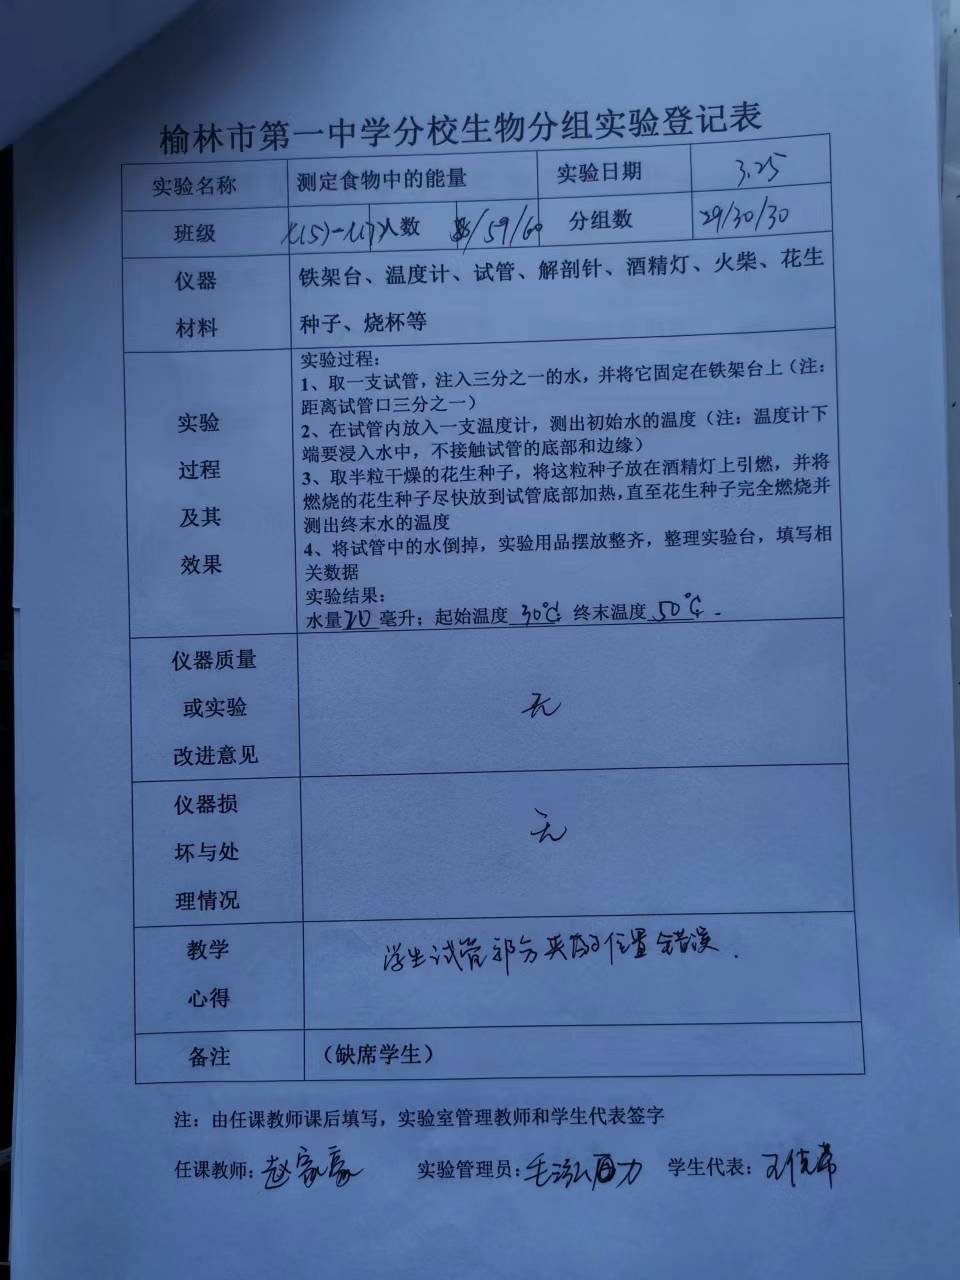 榆林市第一中学分校生物分组实验登记表
实验名称 测定食物中的能量 实验日期 3.25
班级 人数 /59/60 分组数 29/30/30
仪器 材料
铁架台、温度计、试管、解剖针、酒精灯、火柴、花生
种子、烧杯等
实验 过程 及其 效果
实验过程：
1、取一支试管，注入三分之一的水，并将它固定在铁架台上（注：
距离试管口三分之一）
2、在试管内放入一支温度计，测出初始水的温度（注：温度计下
端要浸入水中，不接触试管的底部和边缘）
3、取半粒干燥的花生种子，将这粒种子放在酒精灯上引燃，并将
燃烧的花生种子尽快放到试管底部加热，直至花生种子完全燃烧并
测出终末水的温度
4、将试管中的水倒掉，实验用品摆放整齐，整理实验台，填写相
关数据
实验结果：
水量20毫升；起始温度30℃ 终末温度50℃.
仪器质量
或实验 无
改进意见
仪器损
坏与处 无
理情况
教学 学生试管部分夹的位置错误.
心得
备注 （缺席学生）
注：由任课教师课后填写，实验室管理教师和学生代表签字
任课教师：赵家豪 实验管理员： 学生代表：